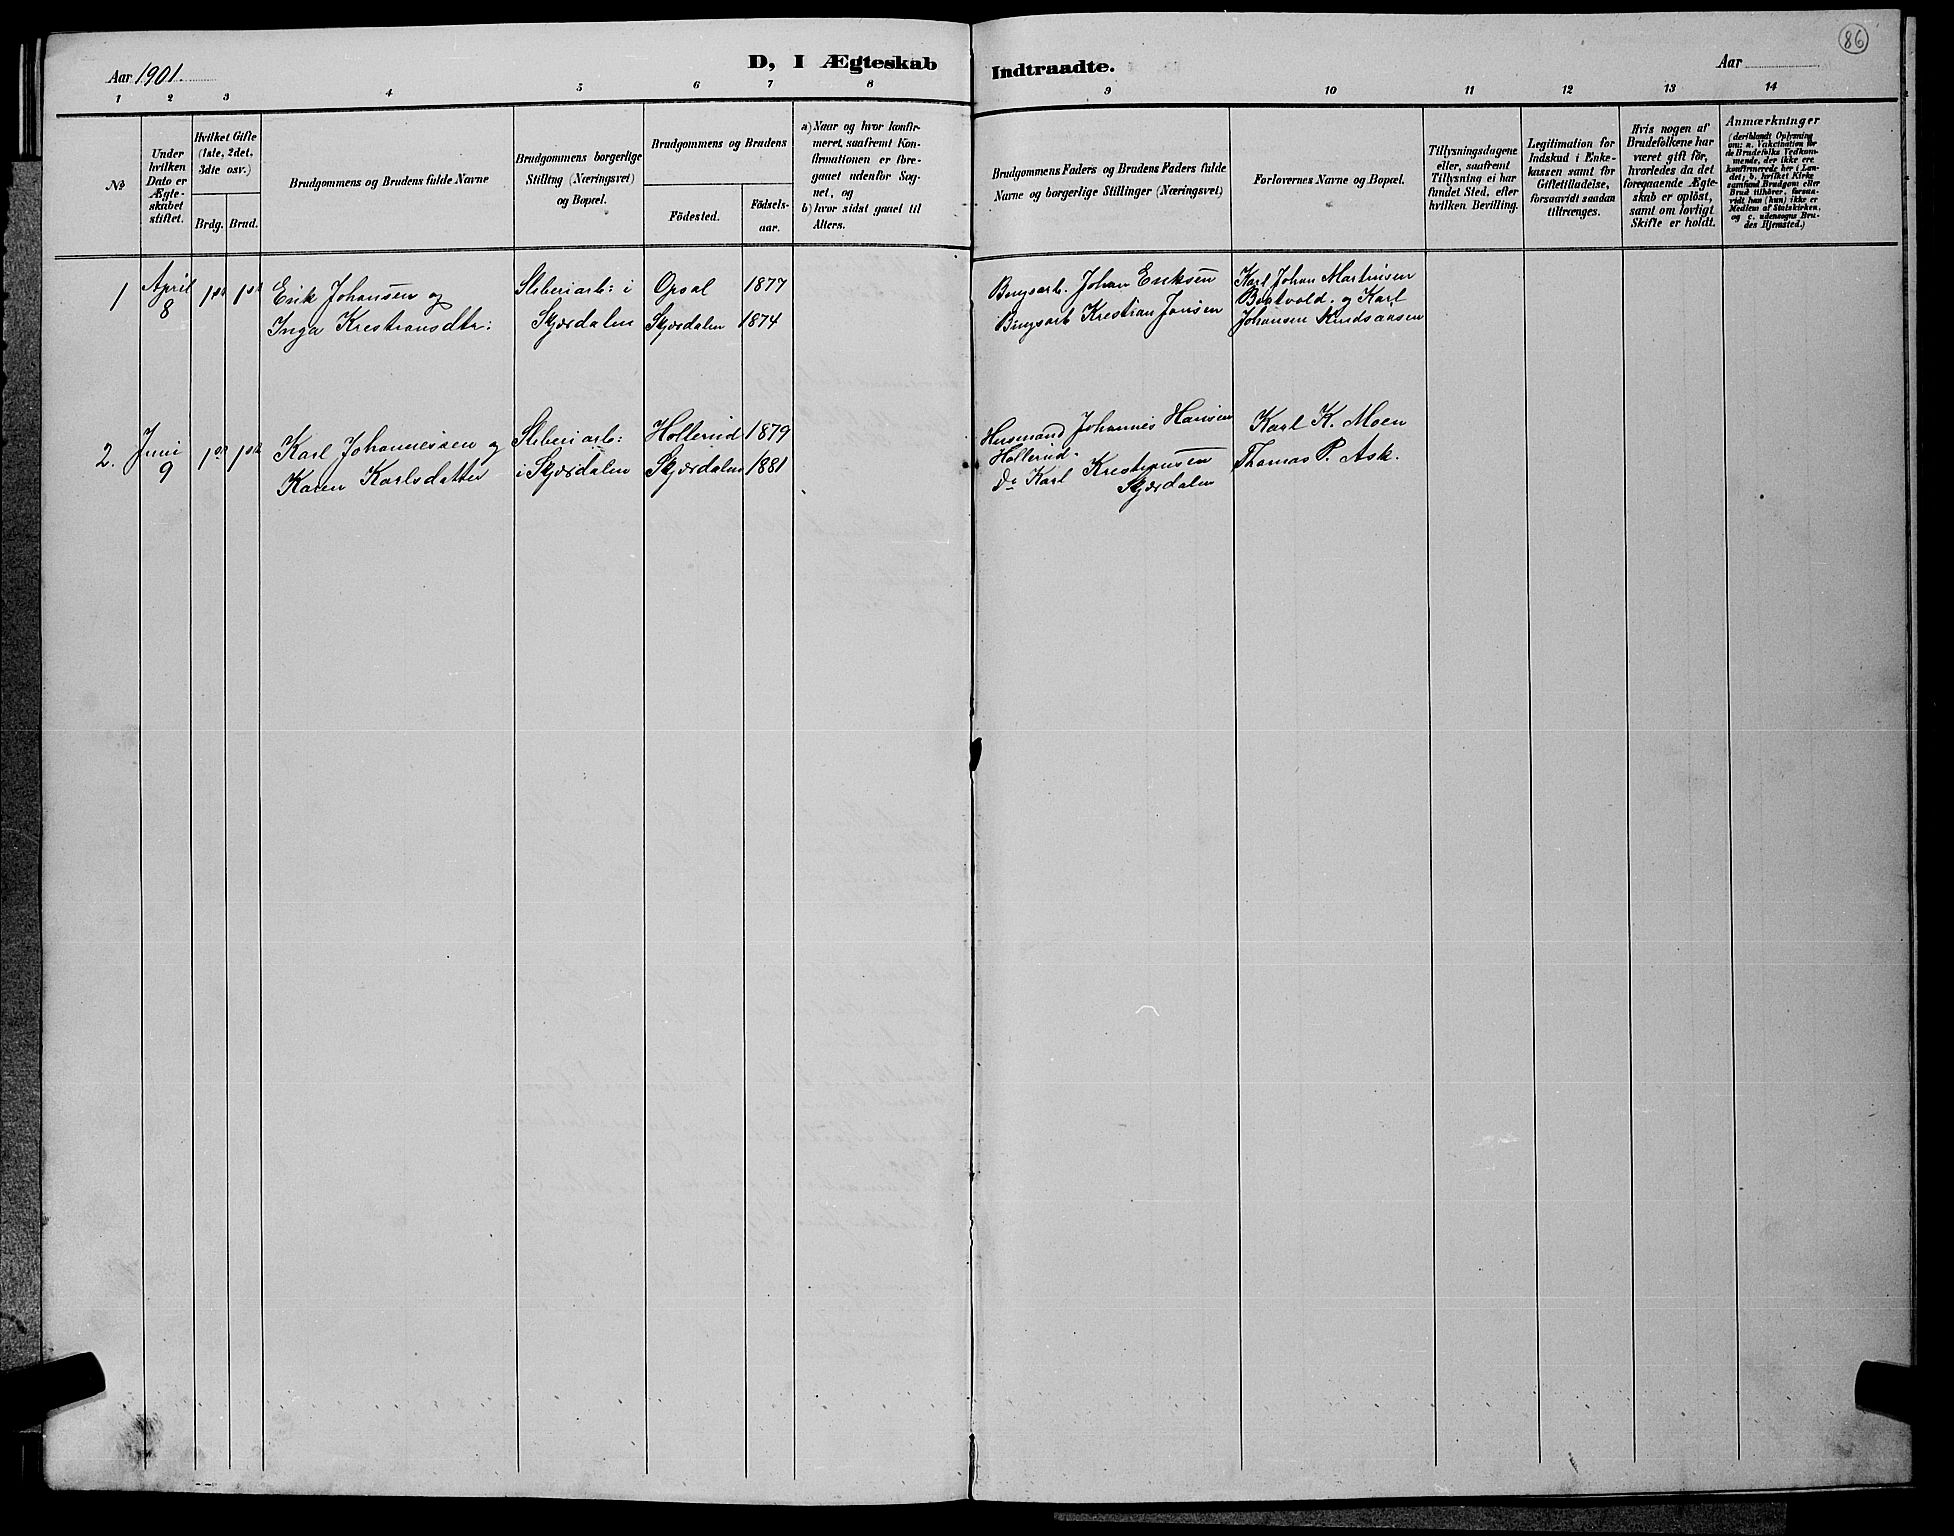 86
Aar 1901.
D, I Ægteskab
Indtraadte.
Aar
1 2 3 4 5 6 7 8 9 10 11 12 13 14
№
Under
hvilken
Dato er
Ægte-
skabet
stiftet.
Hvilket Gifte
(1ste, 2det,
3die osv.)
Brdg. Brud.
Brudgommens og Brudens fulde Navne
Brudgommens borgerlige
Stilling (Næringsvei)
og Bopæl.
Brudgommens og Brudens
Födested.
Födsels-
aar.
a) Naar og hvor konfir-
meret, saafremt Kon-
firmationen er fore-
gaaet udenfor Sog-
net, og
b) hvor sidst gaaet til
Alters.
Brudgommens Faders og Brudens Faders fulde
Navne og borgerlige Stillinger (Næringsvei)
Forlovernes Navne og Bopæl.
Tillysningsdagene
eller, saafremt
Tillysning ei har
fundet Sted, efter
hvilken Bevilling.
Legitimation for
Indskud i Enke-
kassen samt for
Giftetilladelse,
forsaavidt saadan
tiltrænges.
Hvis nogen af
Brudefolkene har
været gift för,
hvorledes da det
foregaaende Ægte-
skab er oplöst,
samt om lovligt
Skifte er holdt.
Anmærkninger
(deriblandt Oplysning
om: a. Vakcination for
de Brudefolks Vedkom-
mende, der ikke ere
konfirmerede her i Lan-
det, b. hvilket Kirke-
samfund Brudgom eller
Brud tilhører, forsaa-
vidt han (hun) ikke er
Medlem af Statskirken,
og c. udensogns Bru-
des Hjemsted.)
1 April 8 1ste 1ste
Erik Johansen og
Inga Krestiansdtr:
Sliberiarb: i
Skjærdalen
Opsal 1877
Skjærdalen 1874
Brugsarb. Johan Eriksen
Brugsarb Krestian Jonsen
Karl Johan Martinsen
og Karl
Johansen
2. Juni 9 1ste 1ste
Karl Johannessen og
Karen Karlsdatter
Sliberiarb:
i Skjærdalen
Hollerud 1879
Skjærdalen 1881
Husmand Johannes Hansen
Hollerud.
Do Karl Krestiansen
Skjærdalen
Karl K. Moen
Thomas P. Ask.